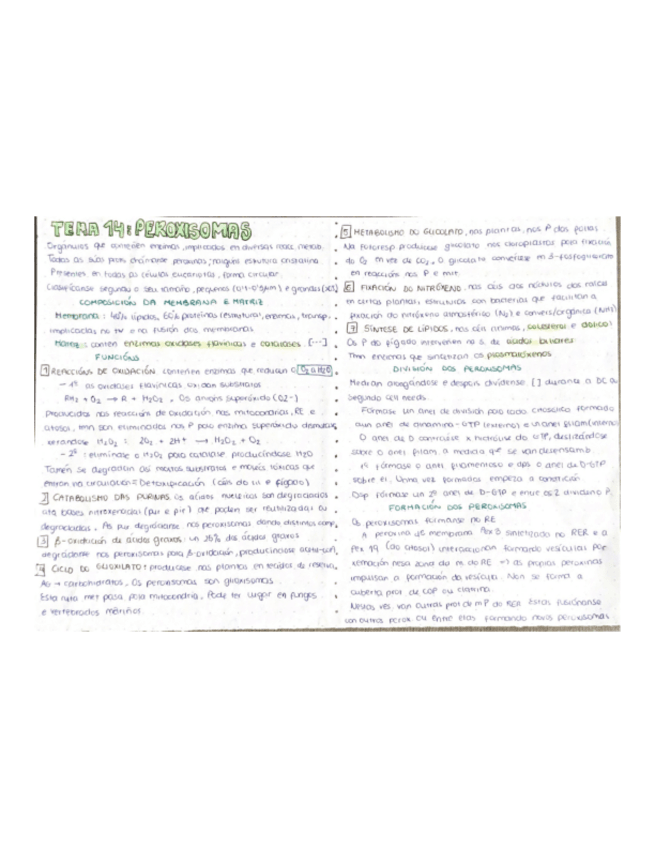 TEMA 14: PEROXISOMAS
Orgánulos que conteñen enzimas, implicados en diversas reacc. metab.
Todas as súas prot. chámanse peroxinas, ningún estrutura cristalina.
Presentes en todas as células eucariotas, forma circular.
Clasifícanse segundo o seu tamaño, pequenos (0,1-0,5μm) e grandes
COMPOSICIÓN DA MEMBRANA E MATRIZ
Membrana: lípidos, proteínas (estrutural, enzimas, transp.
implicadas no e na fusión das membranas
Matriz: conten enzimas oxidases flavínicas e catalases. [...]
FUNCIÓNS
1 REACCIÓNS DE OXIDACIÓN conteñen enzimas que reducen o O2 a H2O
- 1º as oxidases flavínicas oxidan substratos
RH2 + O2 → R + H2O2. Os anións superóxido (O2-)
Producidos nas reaccións de oxidación nas mitocondrias, RE e
citosol, tmn son eliminados nos P pola enzima superóxido dismutas
xerándose H2O2: 2O2 + 2H+ → H2O2 + O2
- 2º: elimínase o H2O2 pola catalase producíndose H2O
Tamén se degradan así moitos substratos e moitos tóxicos que
entran na circulación = Detoxificación (céls do ril e fígado)
2 CATABOLISMO DAS PURINAS os ácidos nucleicos son degradados
ata bases nitroxenadas (pur e pir) que poden ser reutilizadas ou
degradadas. As pur degrádanse nos peroxisomas donde distintos comp.
3 β-oxidación de ácidos graxos: un 25% dos ácidos graxos
degrádanse nos peroxisomas pola β-oxidación, producíndose
4 CICLO DO GLIOXILATO: prodúcese nas plantas en tecidos de reserva,
AG → carbohidratos. Os peroxisomas son glioxisomas.
Esta ruta met pasa pola mitocondria. Pode ter lugar en fungos
e vertebrados mariños.
5 METABOLISMO DO GLICOLATO, nas plantas, nos P das follas.
Na fotoresp prodúcese glicolato nos cloroplastos pola fixación
do O2 en vez de CO2. O glicolato convértese en 3-fosfoglicerato
en reaccións nos P e mit.
6 FIXACIÓN DO NITRÓXENO, nas céls dos nódulos das raíces
en certas plantas, estrutúras con bacterias que facilitan a
fixación do nitróxeno atmosférico (N2) e convers/orgánica (NH3)
7 SÍNTESE DE LÍPIDOS, nas céls animais, colesterol e dolicol
Os P do fígado interveñen na S. de ácidos biliares
Tmn enzimas que sintetizan os plasmalóxenos
DIVISIÓN DOS PEROXISOMAS
Medran alongándose e despois divídense [] durante a DC ou
segundo cell needs.
Fórmase un anel de división pola cada
cun anel de dinamina-GTP (externo) e un anel filam (interno)
O anel de D contráese x hidrólise do GTP, deslizándose
sobre o anel filam a medida que se van desensamb.
1º fórmase o anel filamentoso e dps o anel de D-GTP
sobre el. Unha vez formados empeza a constricción
Dsp fórmase un 2º anel de D-GTP e entre os 2 divídeno P.
FORMACIÓN DOS PEROXISOMAS
Os peroxisomas fórmanse no RE
A peroxina de membrana Pex3 sintetizada no RER e a
Pex 19 (do citosol) interaccionan formando vesículas por
xemación nesa zona da m. do RE → as propias peroxinas
impulsan a formación da vesícula. Non se forma a
cuberta prot de COP ou clatrina.
Nestas ves. van outras prot de m P do RER. Estas fusiónanse
con outras perox. ou entre elas formando novos peroxisomas